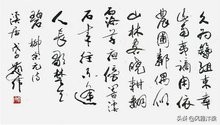 久为簪组累幸
此南夷谪闲依
農圃鄰偶似
山林客晓耕翻
露草夜榜响溪
石来往不逢
人長歌楚天
碧 柳宗元诗
溪居